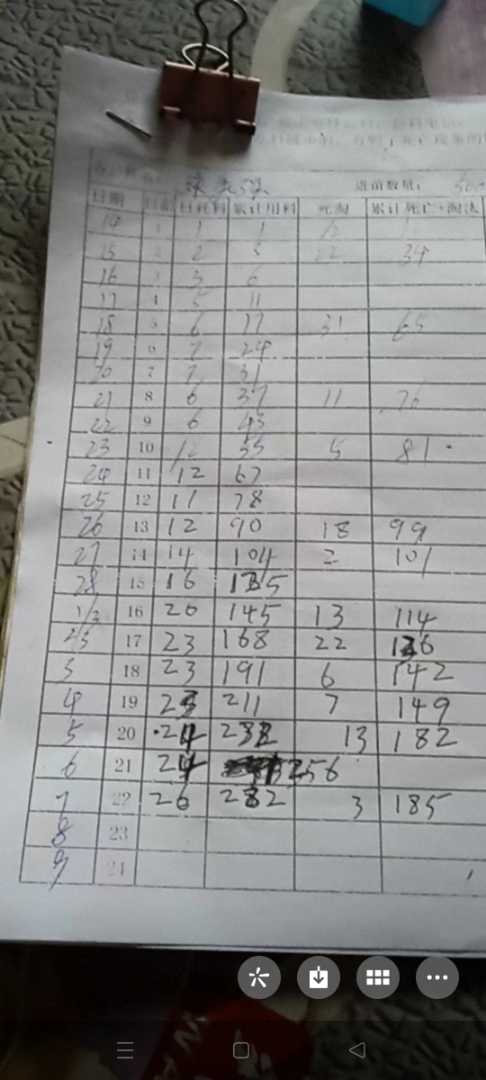 进苗数量：
日期 日龄 日耗料 累计用料 死淘 累计死亡+淘汰
14 1 1 1
15 2 2 3 22 34
16 3 3 6
17 4 5 11
18 5 6 17 31 65
19 6 7 24
20 7 7 31
21 8 6 37 11 76
22 9 6 43
23 10 12 55 5 81
24 11 12 67
25 12 11 78
26 13 12 90 18 99
27 14 14 104 2 101
28 15 16
1/3 16 20 145 13 114
2/3 17 23 168 22 136
3 18 23 191 6 142
4 19 23 211 7 149
5 20 24 13 182
6 21 24 256
7 22 26 282 3 185
8 23
9 24